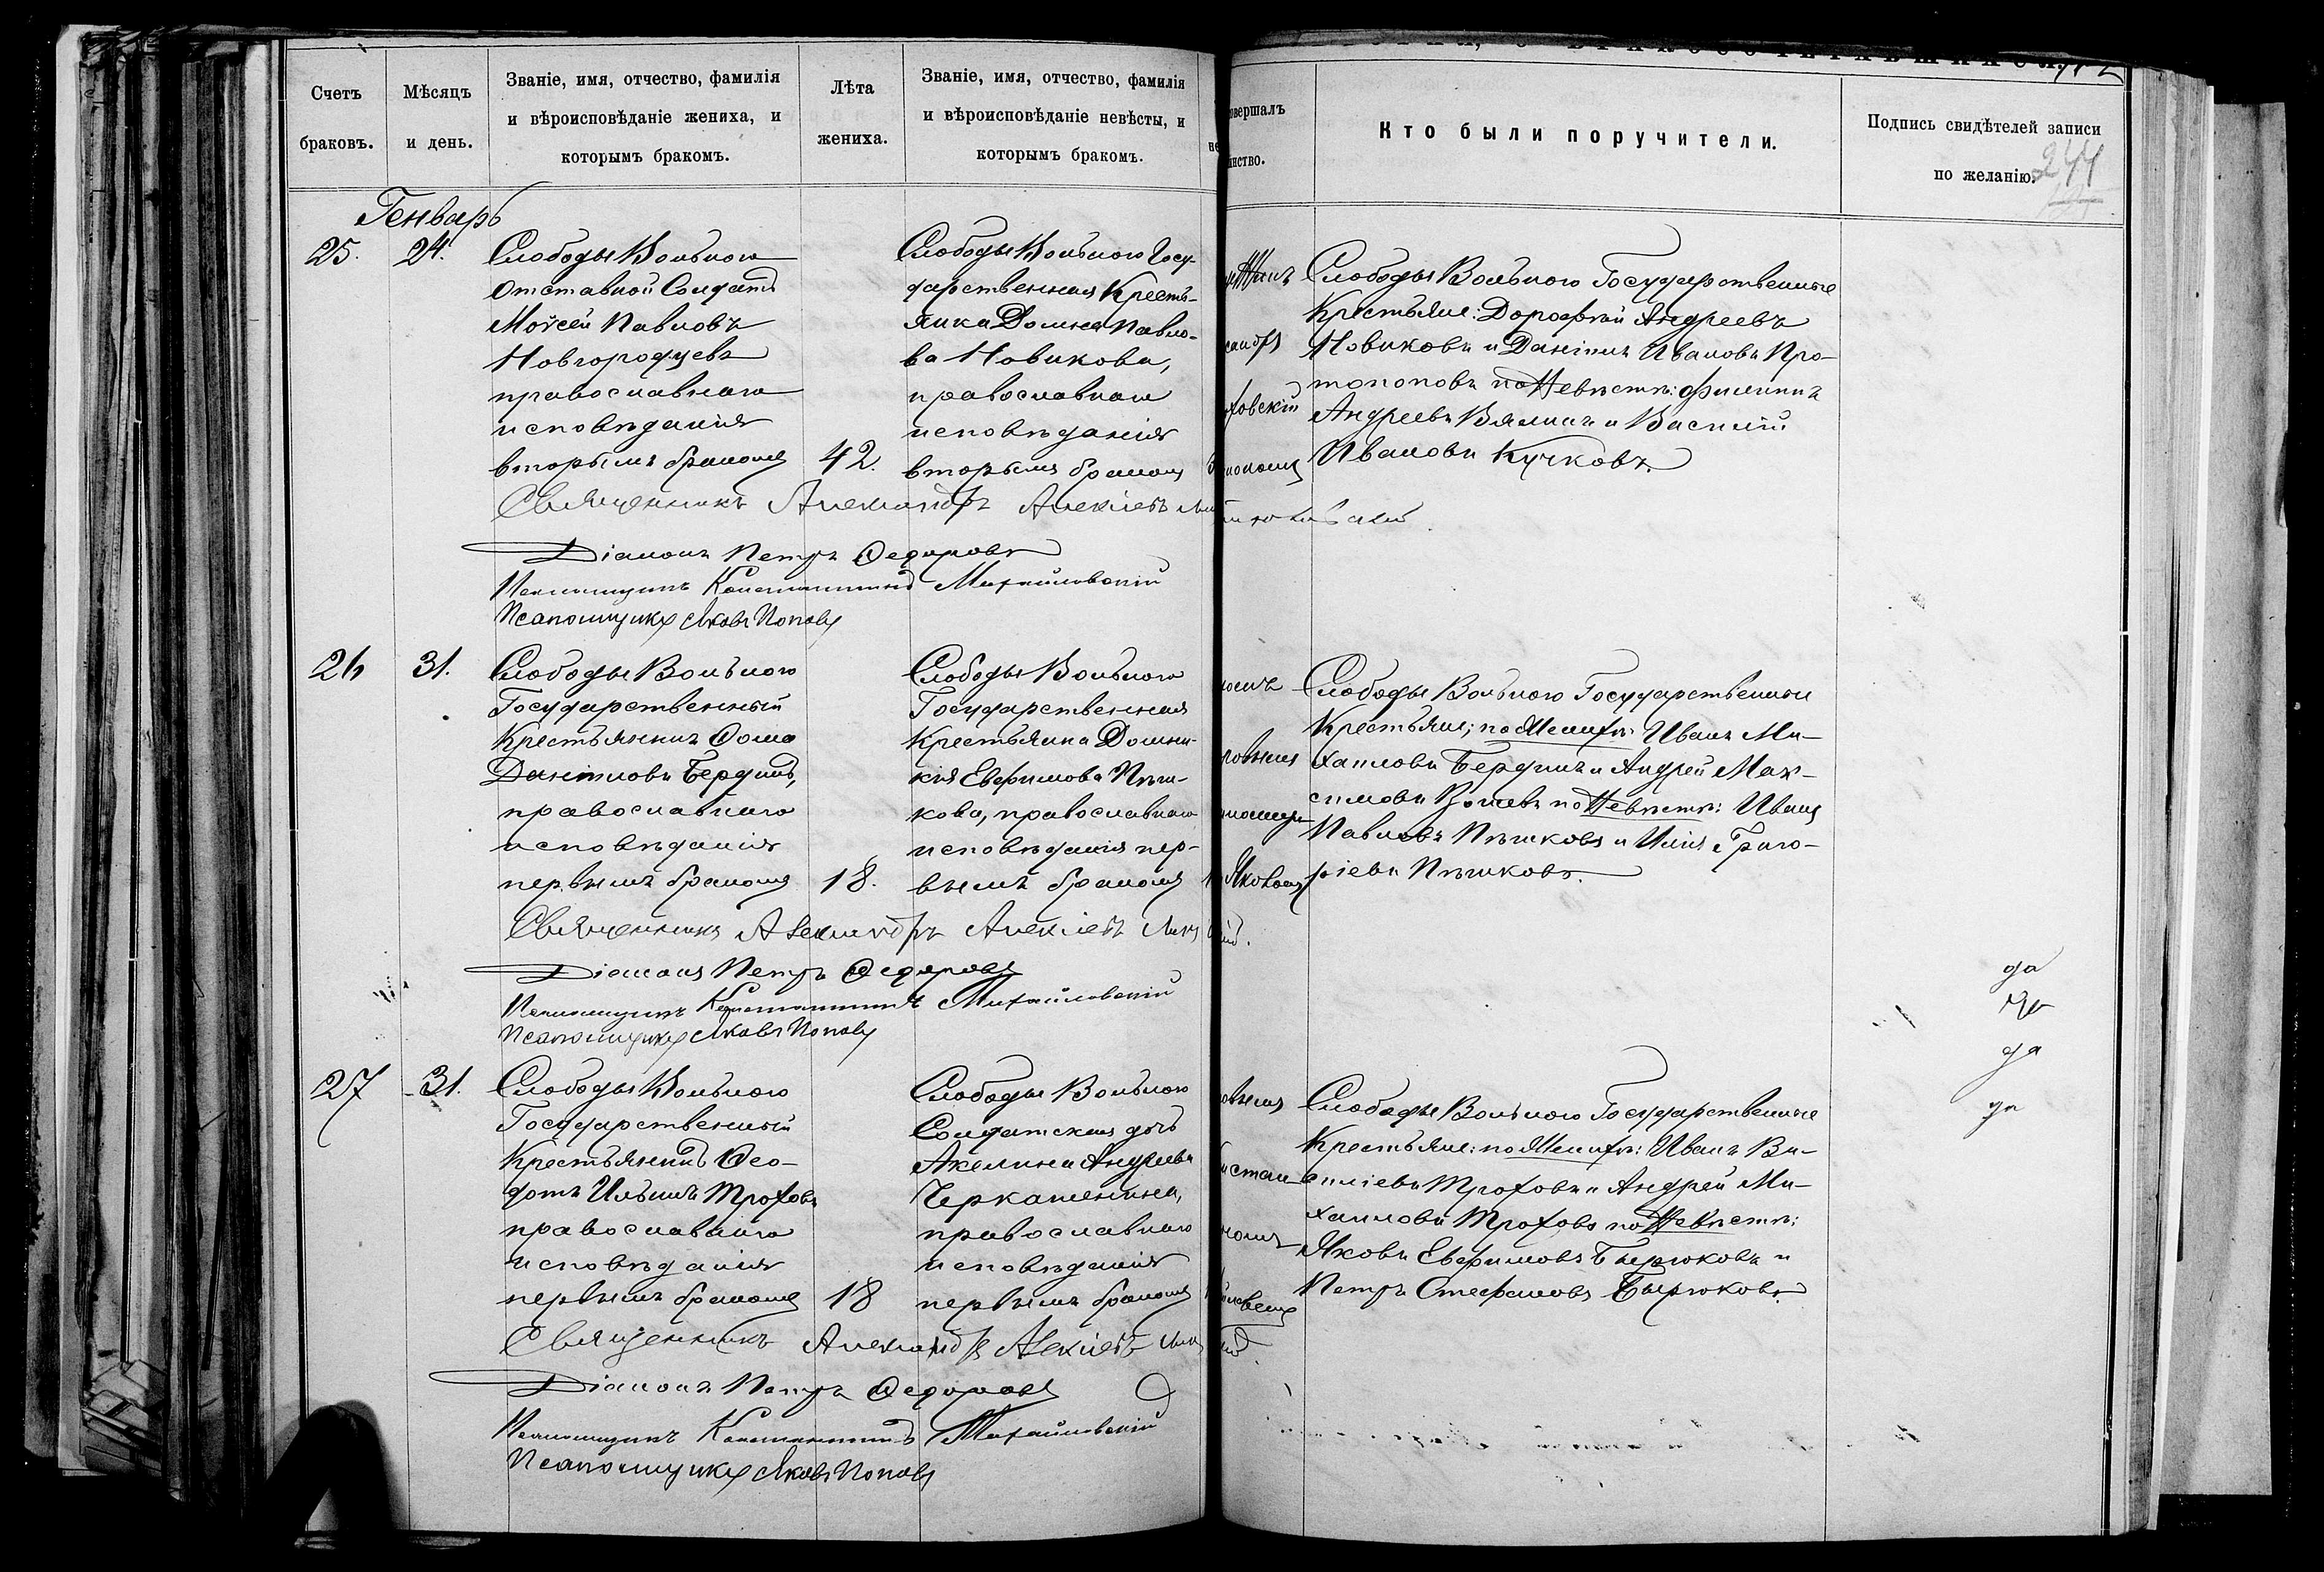 Счетъ
браковъ.
Мѣсяцъ
и день.
Званіе, имя, отчество, фамилія
и вѣроисповѣданіе жениха, и
которымъ бракомъ.
Лѣта
жениха.
Званіе, имя, отчество, фамилія
и вѣроисповѣданіе невѣсты, и
которымъ бракомъ.
овершалъ
инство.
Кто были поручители.
Подпись свидѣтелей записи
по желанію.
244
Генварь
25.
24.
Слободы Вольного
Отставной Солдатъ
Моѵсей Павловъ
Новгородцевъ
православнаго
исповѣданія
вторымъ бракомъ
42.
Слободы Вольного Госу-
дарственная Кресть-
янка Домна Павло-
ва Новикова,
православнаго
исповѣданія
вторымъ бракомъ
Слободы Вольного Государственные
Крестьяне: Дорофей Андреевъ
Новиковъ и Даніилъ Ивановъ Про-
топоповъ по Невѣстѣ: Филиппъ
Андреевъ Вялыхъ и Василій
Ивановъ Кучковъ.
Священникъ Александръ Алексіевъ
Діаконъ Петръ Ѳедоровъ
Псаломщикъ Константинъ Михайловскій
Псаломщикъ Яковъ Поповъ
26
31.
Слободы Вольного
Государственный
Крестьянинъ Ѳома
Даніиловъ Бердинъ,
православнаго
исповѣданія
первымъ бракомъ
18.
Слободы Вольного
Государственная
Крестьянка Домни-
кія Евфимова Пѣш-
кова, православнаго
исповѣданія пер-
вымъ бракомъ
Слободы Вольного Государственные
Крестьяне; по Женихѣ: Иванъ Ми-
хаиловъ Бердинъ и Андрей Мак-
симовъ по Невѣстѣ: Иванъ
Павловъ Пѣшковъ и Илія Григо-
ріевъ Пѣшковъ.
Священникъ Александръ Алексіевъ
Діаконъ Петръ Ѳедоровъ
Псаломщикъ Константинъ Михайловскій
Псаломщикъ Яковъ Поповъ
да
да
да
27
31.
Слободы Вольного
Государственный
Крестьянинъ Ѳео-
дотъ Ильинъ Трофовъ
православнаго
исповѣданія
первымъ бракомъ
18
Слободы Вольного
Солдатская дочь
Акелина Андреева
Черкашенина,
православнаго
исповѣданія
первымъ бракомъ
Слободы Вольного Государственные
Крестьяне: по Женихѣ: Иванъ Ва-
силіевъ Трофовъ и Андрей Ми-
хаиловъ Трофовъ по Невѣстѣ:
Яковъ Евфимовъ Бирюковъ и
Петръ Стефановъ Бирюковъ.
Священникъ Александръ Алексіевъ
Діаконъ Петръ Ѳедоровъ
Псаломщикъ Константинъ Михайловскій
Псаломщикъ Яковъ Поповъ